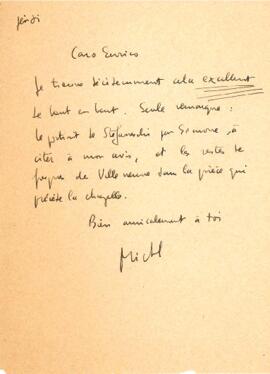 jeudi
Caro Enrico
Je trouve décidemment cela excellent
de haut en bas. Seule remarque :
le portrait de Stefaneschi par Simone, à
citer à mon avis, et les restes de
de Villeneuve dans la pièce qui
précède la chapelle.
Bien amicalement à toi
Michel